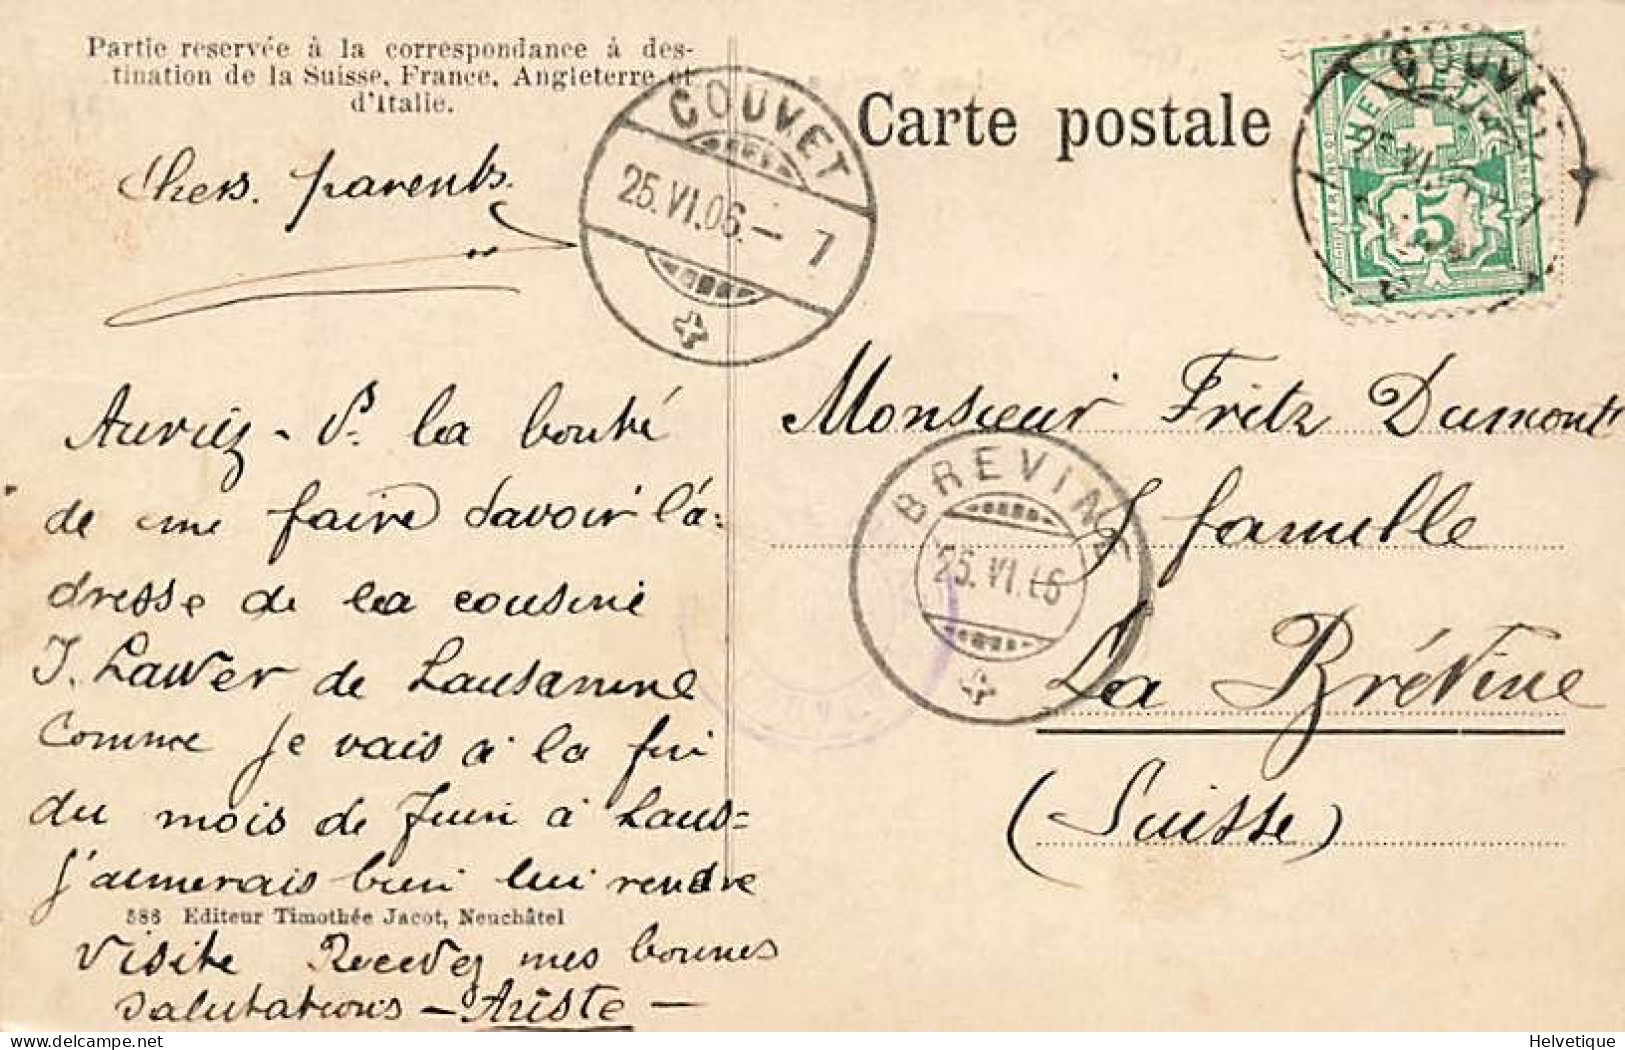 Partie reservée à la correspondance à des-
tination de la Suisse, France, Angleterre et
d'Italie.
Carte postale
COUVET
25.VI.06.–7
COUVET
HELVETIA
5
Chers parents.
Auriez-Vs la bonté
de me faire savoir l'a=
dresse de la cousine
J. Lawer de Lausanne
Comme je vais à la fin
du mois de Juin à Laus=
j'aimerais bien lui rendre
586 Editeur Timothée Jacot, Neuchâtel
visite Recevez mes bonnes
salutations – Ariste –
Monsieur Fritz Dumont
& famille
La Brévine
(Suisse)
BREVINE
25.VI.06
Helvetique